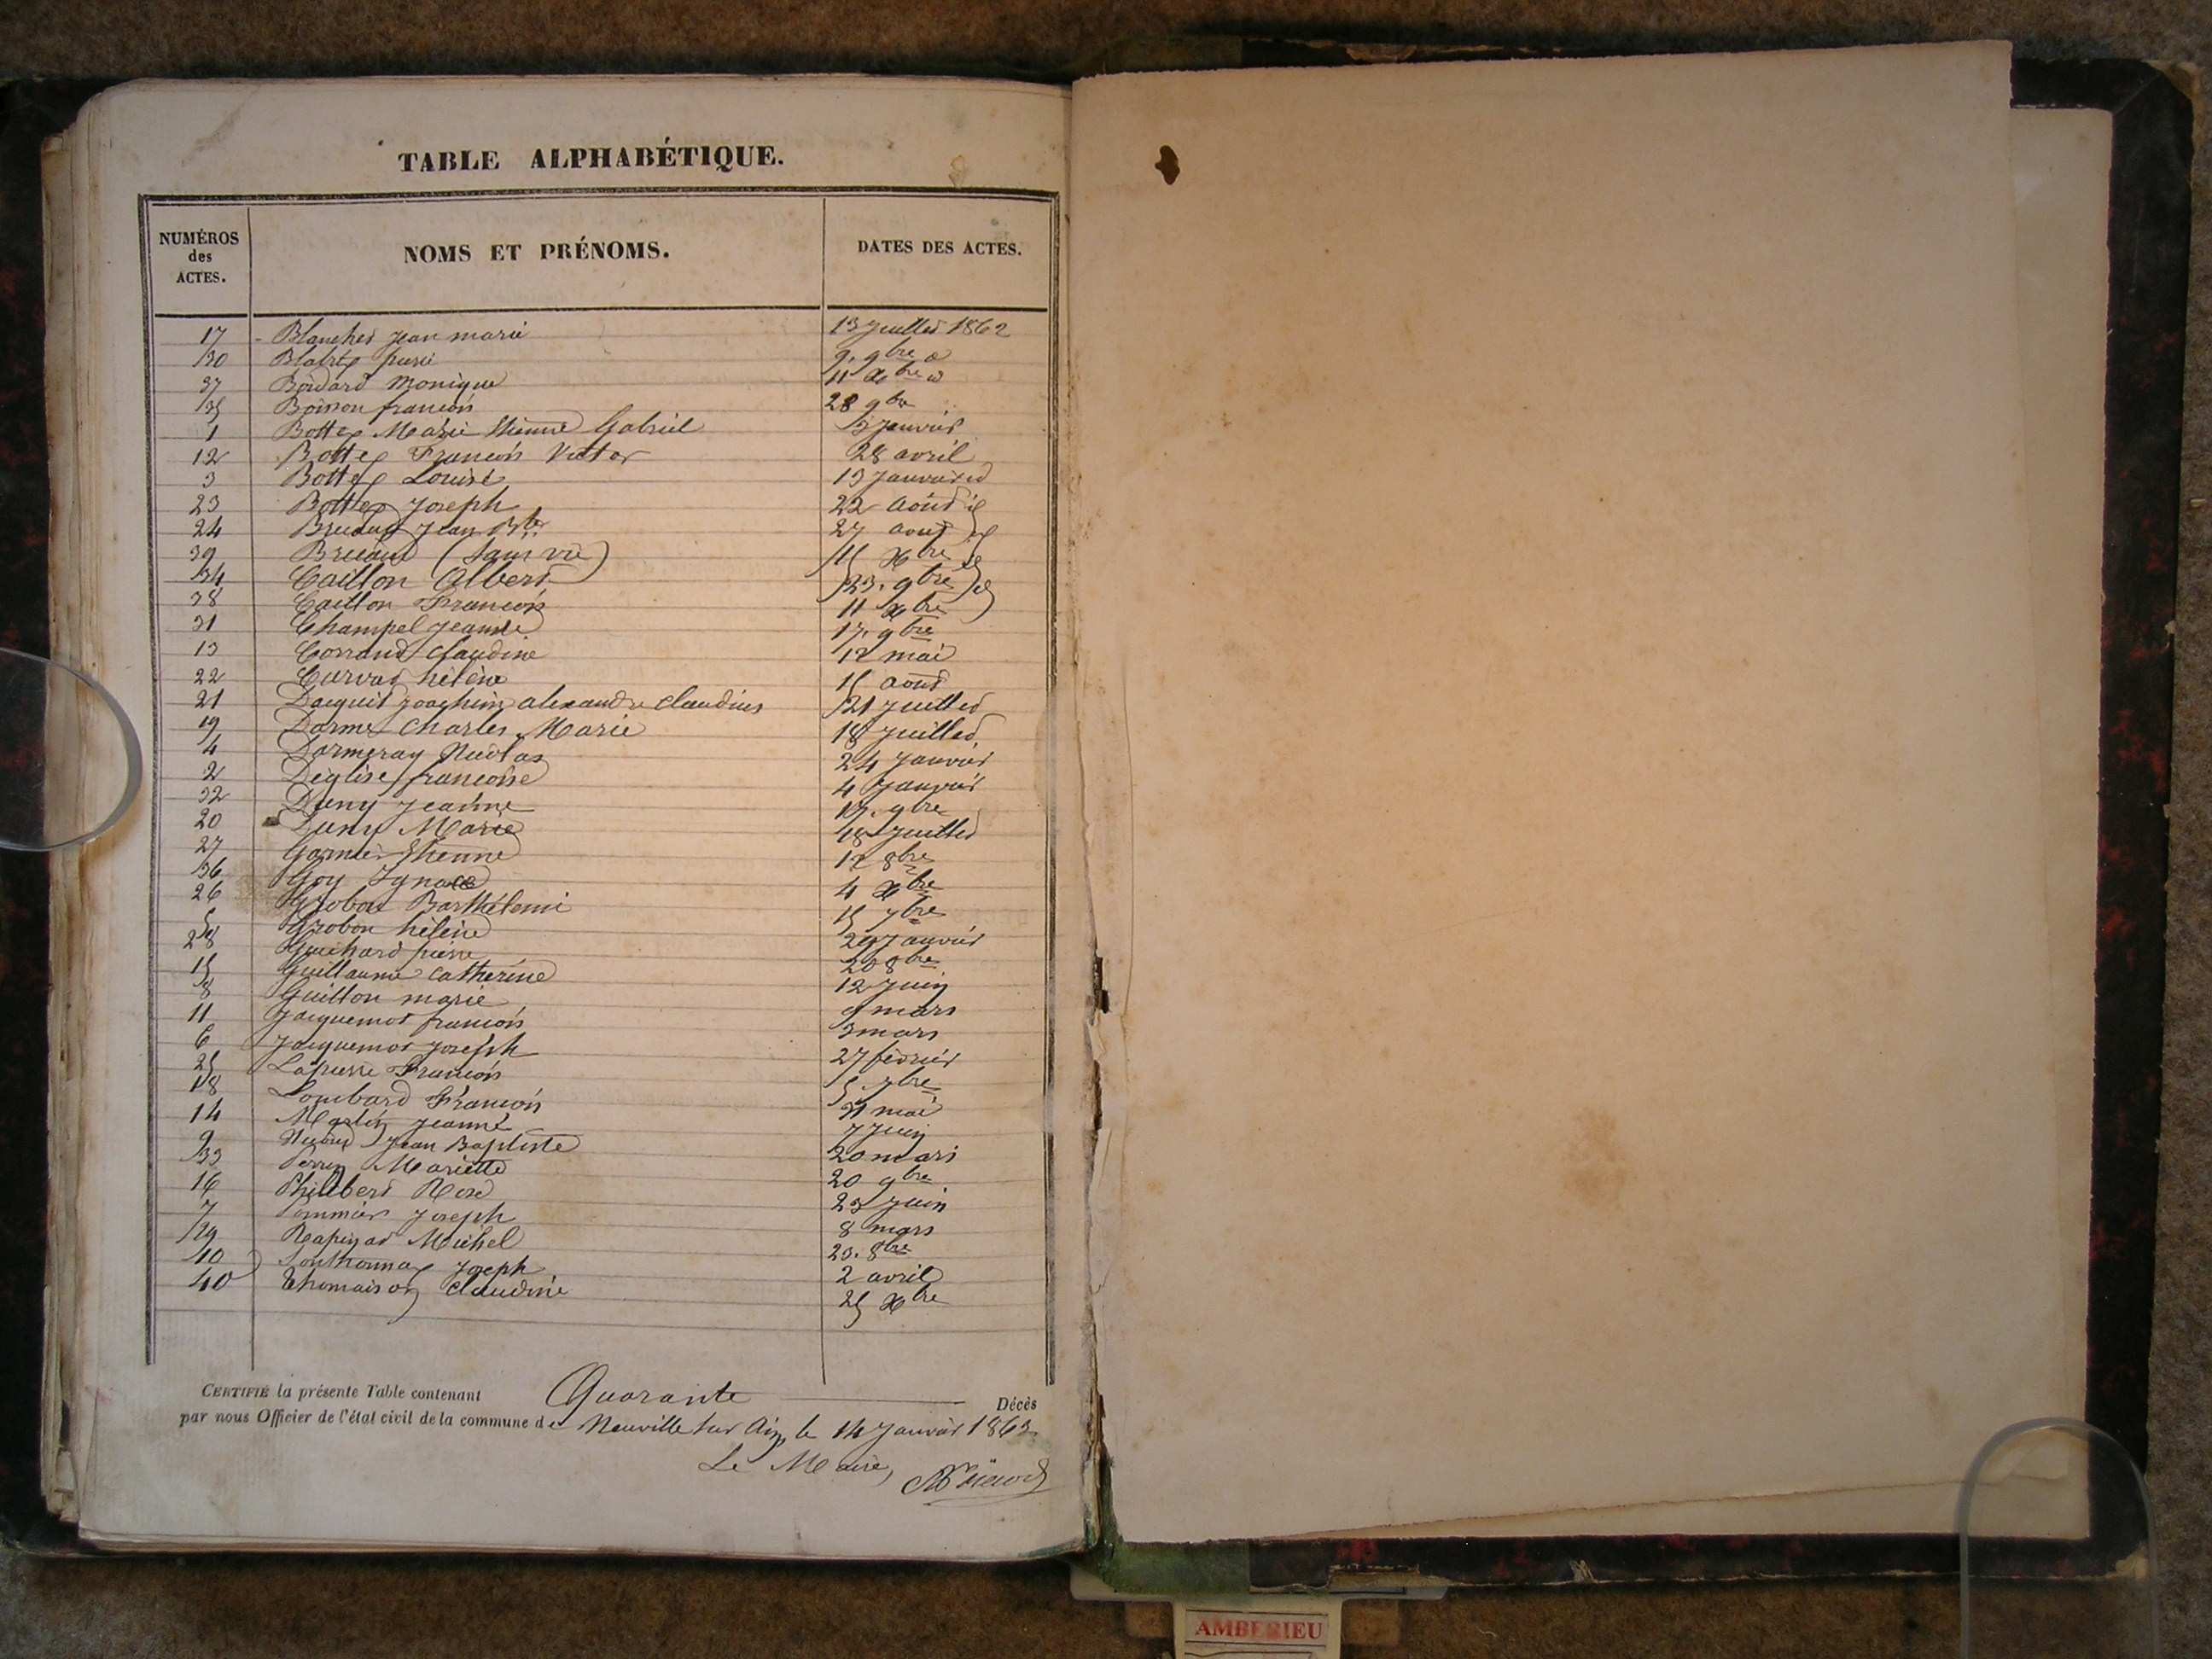 TABLE ALPHABÉTIQUE.
NUMÉROS des ACTES. NOMS ET PRÉNOMS. DATES DES ACTES.
17 Blanchet Jean marie 13 Juillet 1862
30 pierre 9. 9bre
37 Boidard Monique 11 Xbre
35 Boisson françois 28 9bre
1 Bottex Marie Etienne Gabriel 3 Janvier
12 Bottex François Victor 28 avril
3 Bottex Louise 13 Janvier
23 Bottex Joseph 22 août
24 Jean Bte 27 août
39 (Sans vie) 15 Xbre
34 Caillon Albert 23. 9bre
38 Caillon François 11 Xbre
31 Champel Jeanne 17. 9bre
13 Corrand Claudine 12 mai
22 hélène 15 août
21 Joachim alexandre Claudius 21 Juillet
19 Charles Marie 18 Juillet
4 Dormeray Nicolas 24 Janvier
2 Déglise françoise 4 Janvier
32 Duny Jeanne 19. 9bre
20 Duny Marie 18 Juillet
27 Garnier Etienne 12 8bre
36 Goy Ignace 4 Xbre
26 Grobon Barthélemi 15 7bre
5 Grobon hélène 29 Janvier
28 Guichard pierre 20 8bre
15 Guillaume Catherine 12 Juin
8 Guillon marie mars
11 Jacquemot françois 3 mars
6 Jacquemot Joseph 27 février
25 Lapierre François 5. 7bre
18 Lombard François 31 mai
14 Jeanne 7 Juin
9 Jean Baptiste 20 mars
33 Perrin Mariette 20 9bre
16 Philibert Rose 23 Juin
7 Pommier Joseph 8 mars
29 Michel 23. 8bre
10 Sonthonnax Joseph 2 avril
40 Thomaison Claudine 25 Xbre
CERTIFIÉ la présente Table contenant Quarante Décès
par nous Officier de l'état civil de la commune de Neuville sur Ain, le 14 Janvier 1863
Le Maire,
AMBERIEU